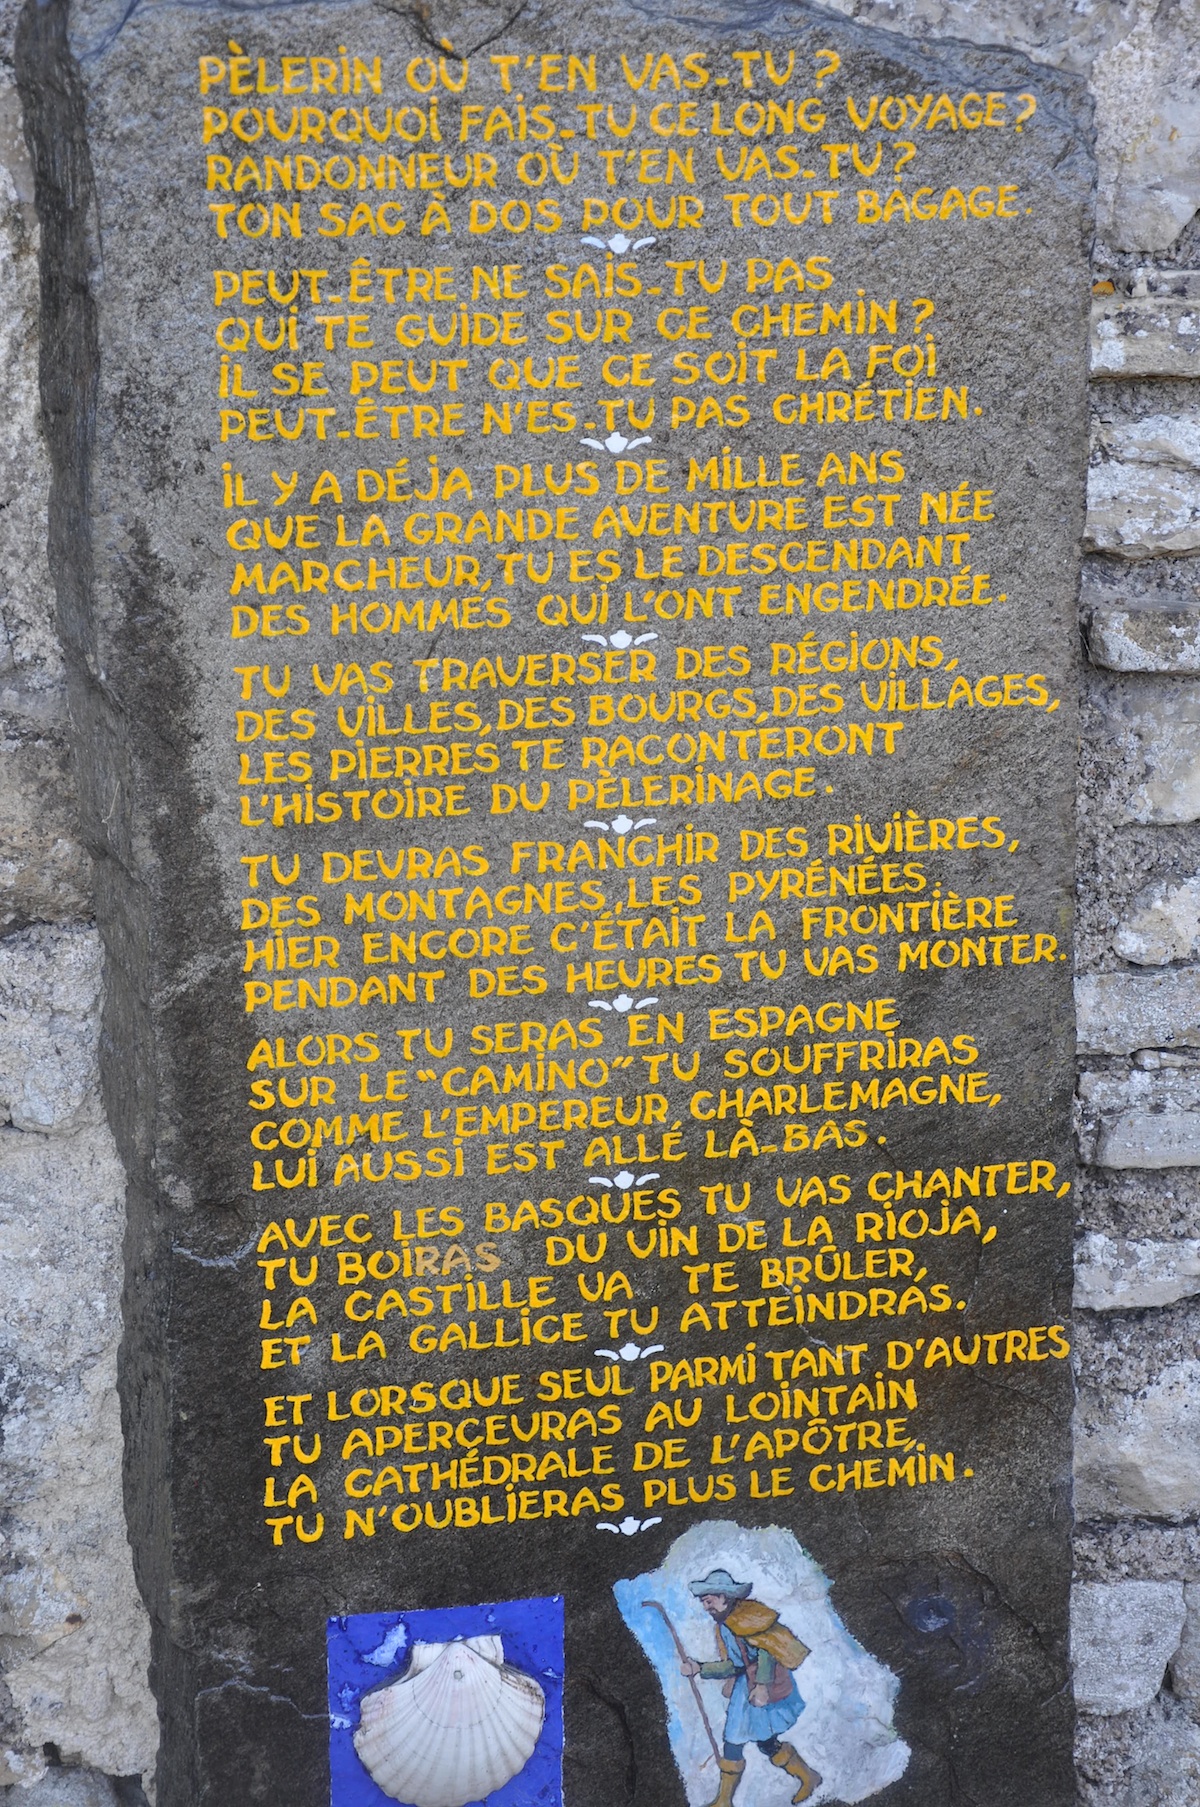 PÈLERIN OÙ T'EN VAS-TU ?
POURQUOI FAIS-TU CE LONG VOYAGE ?
RANDONNEUR OÙ T'EN VAS-TU ?
TON SAC À DOS POUR TOUT BAGAGE.
PEUT-ÊTRE NE SAIS-TU PAS
QUI TE GUIDE SUR CE CHEMIN ?
IL SE PEUT QUE CE SOIT LA FOI
PEUT-ÊTRE N'ES-TU PAS CHRÉTIEN.
IL Y A DÉJA PLUS DE MILLE ANS
QUE LA GRANDE AVENTURE EST NÉE
MARCHEUR, TU ES LE DESCENDANT
DES HOMMES QUI L'ONT ENGENDRÉE.
TU VAS TRAVERSER DES RÉGIONS,
DES VILLES, DES BOURGS, DES VILLAGES,
LES PIERRES TE RACONTERONT
L'HISTOIRE DU PÈLERINAGE.
TU DEVRAS FRANCHIR DES RIVIÈRES,
DES MONTAGNES, LES PYRÉNÉES.
HIER ENCORE C'ÉTAIT LA FRONTIÈRE
PENDANT DES HEURES TU VAS MONTER.
ALORS TU SERAS EN ESPAGNE
SUR LE "CAMINO" TU SOUFFRIRAS
COMME L'EMPEREUR CHARLEMAGNE,
LUI AUSSI EST ALLÉ LÀ-BAS.
AVEC LES BASQUES TU VAS CHANTER,
TU BOIRAS DU VIN DE LA RIOJA,
LA CASTILLE VA TE BRÛLER,
ET LA GALLICE TU ATTEINDRAS.
ET LORSQUE SEUL PARMI TANT D'AUTRES
TU APERCEVRAS AU LOINTAIN
LA CATHÉDRALE DE L'APÔTRE,
TU N'OUBLIERAS PLUS LE CHEMIN.